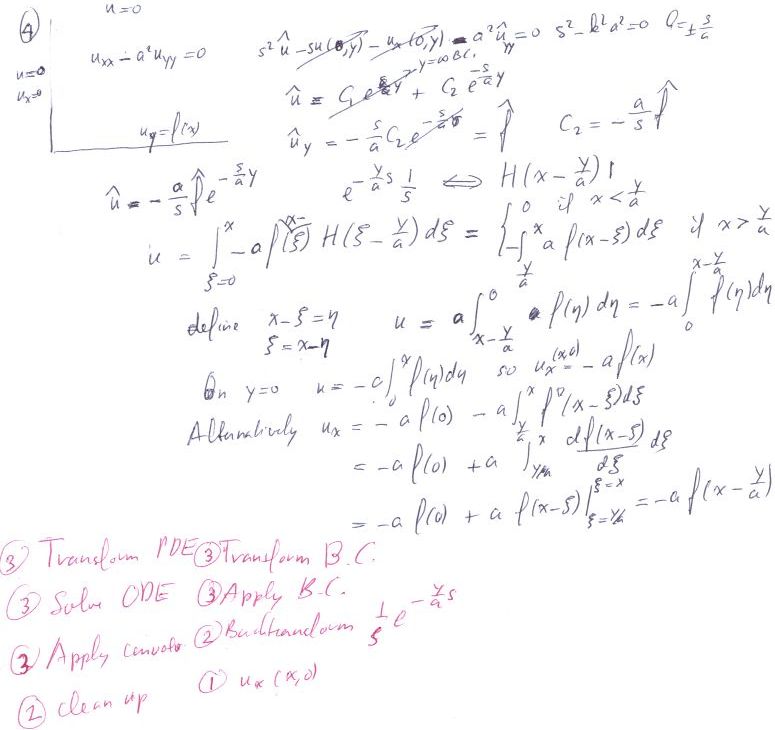 ④
u=0
u=0
uₓ=0
uₓₓ - a²u_yy = 0
u_y = f(x)
s²û - su(0,y) - uₓ(0,y) - a²û_yy = 0   s² - k²a² = 0   k = ± s/a
y=∞ B.C.
û = C₁e^{(s/a)y} + C₂e^{-(s/a)y}
û_y = -(s/a)C₂e^{-(s/a)0} = f̂   C₂ = -(a/s)f̂
û = -(a/s)f̂e^{-(s/a)y}   e^{-(y/a)s} 1/s ⟺ H(x - y/a) 1
u = ∫_{ξ=0}^{x} -a f(x-ξ) H(ξ - y/a) dξ = { 0 if x < y/a
-∫_{y/a}^{x} a f(x-ξ) dξ if x > y/a
define x-ξ = η   u = a∫_{x-y/a}^{0} f(η) dη = -a∫_{0}^{x-y/a} f(η) dη
ξ = x-η
On y=0 u = -a∫_{0}^{x} f(η)dη so uₓ(x,0) = -a f(x)
Alternatively uₓ = -a f(0) - a∫_{y/a}^{x} f'(x-ξ)dξ
= -a f(0) + a∫_{y/a}^{x} df(x-ξ)/dξ dξ
= -a f(0) + a f(x-ξ)|_{ξ=y/a}^{ξ=x} = -a f(x - y/a)
③ Transform PDE ③ Transform B.C.
③ Solve ODE ③ Apply B.C.
③ Apply convolo ② Backtransform 1/s e^{-(y/a)s}
② clean up ① uₓ(x,0)